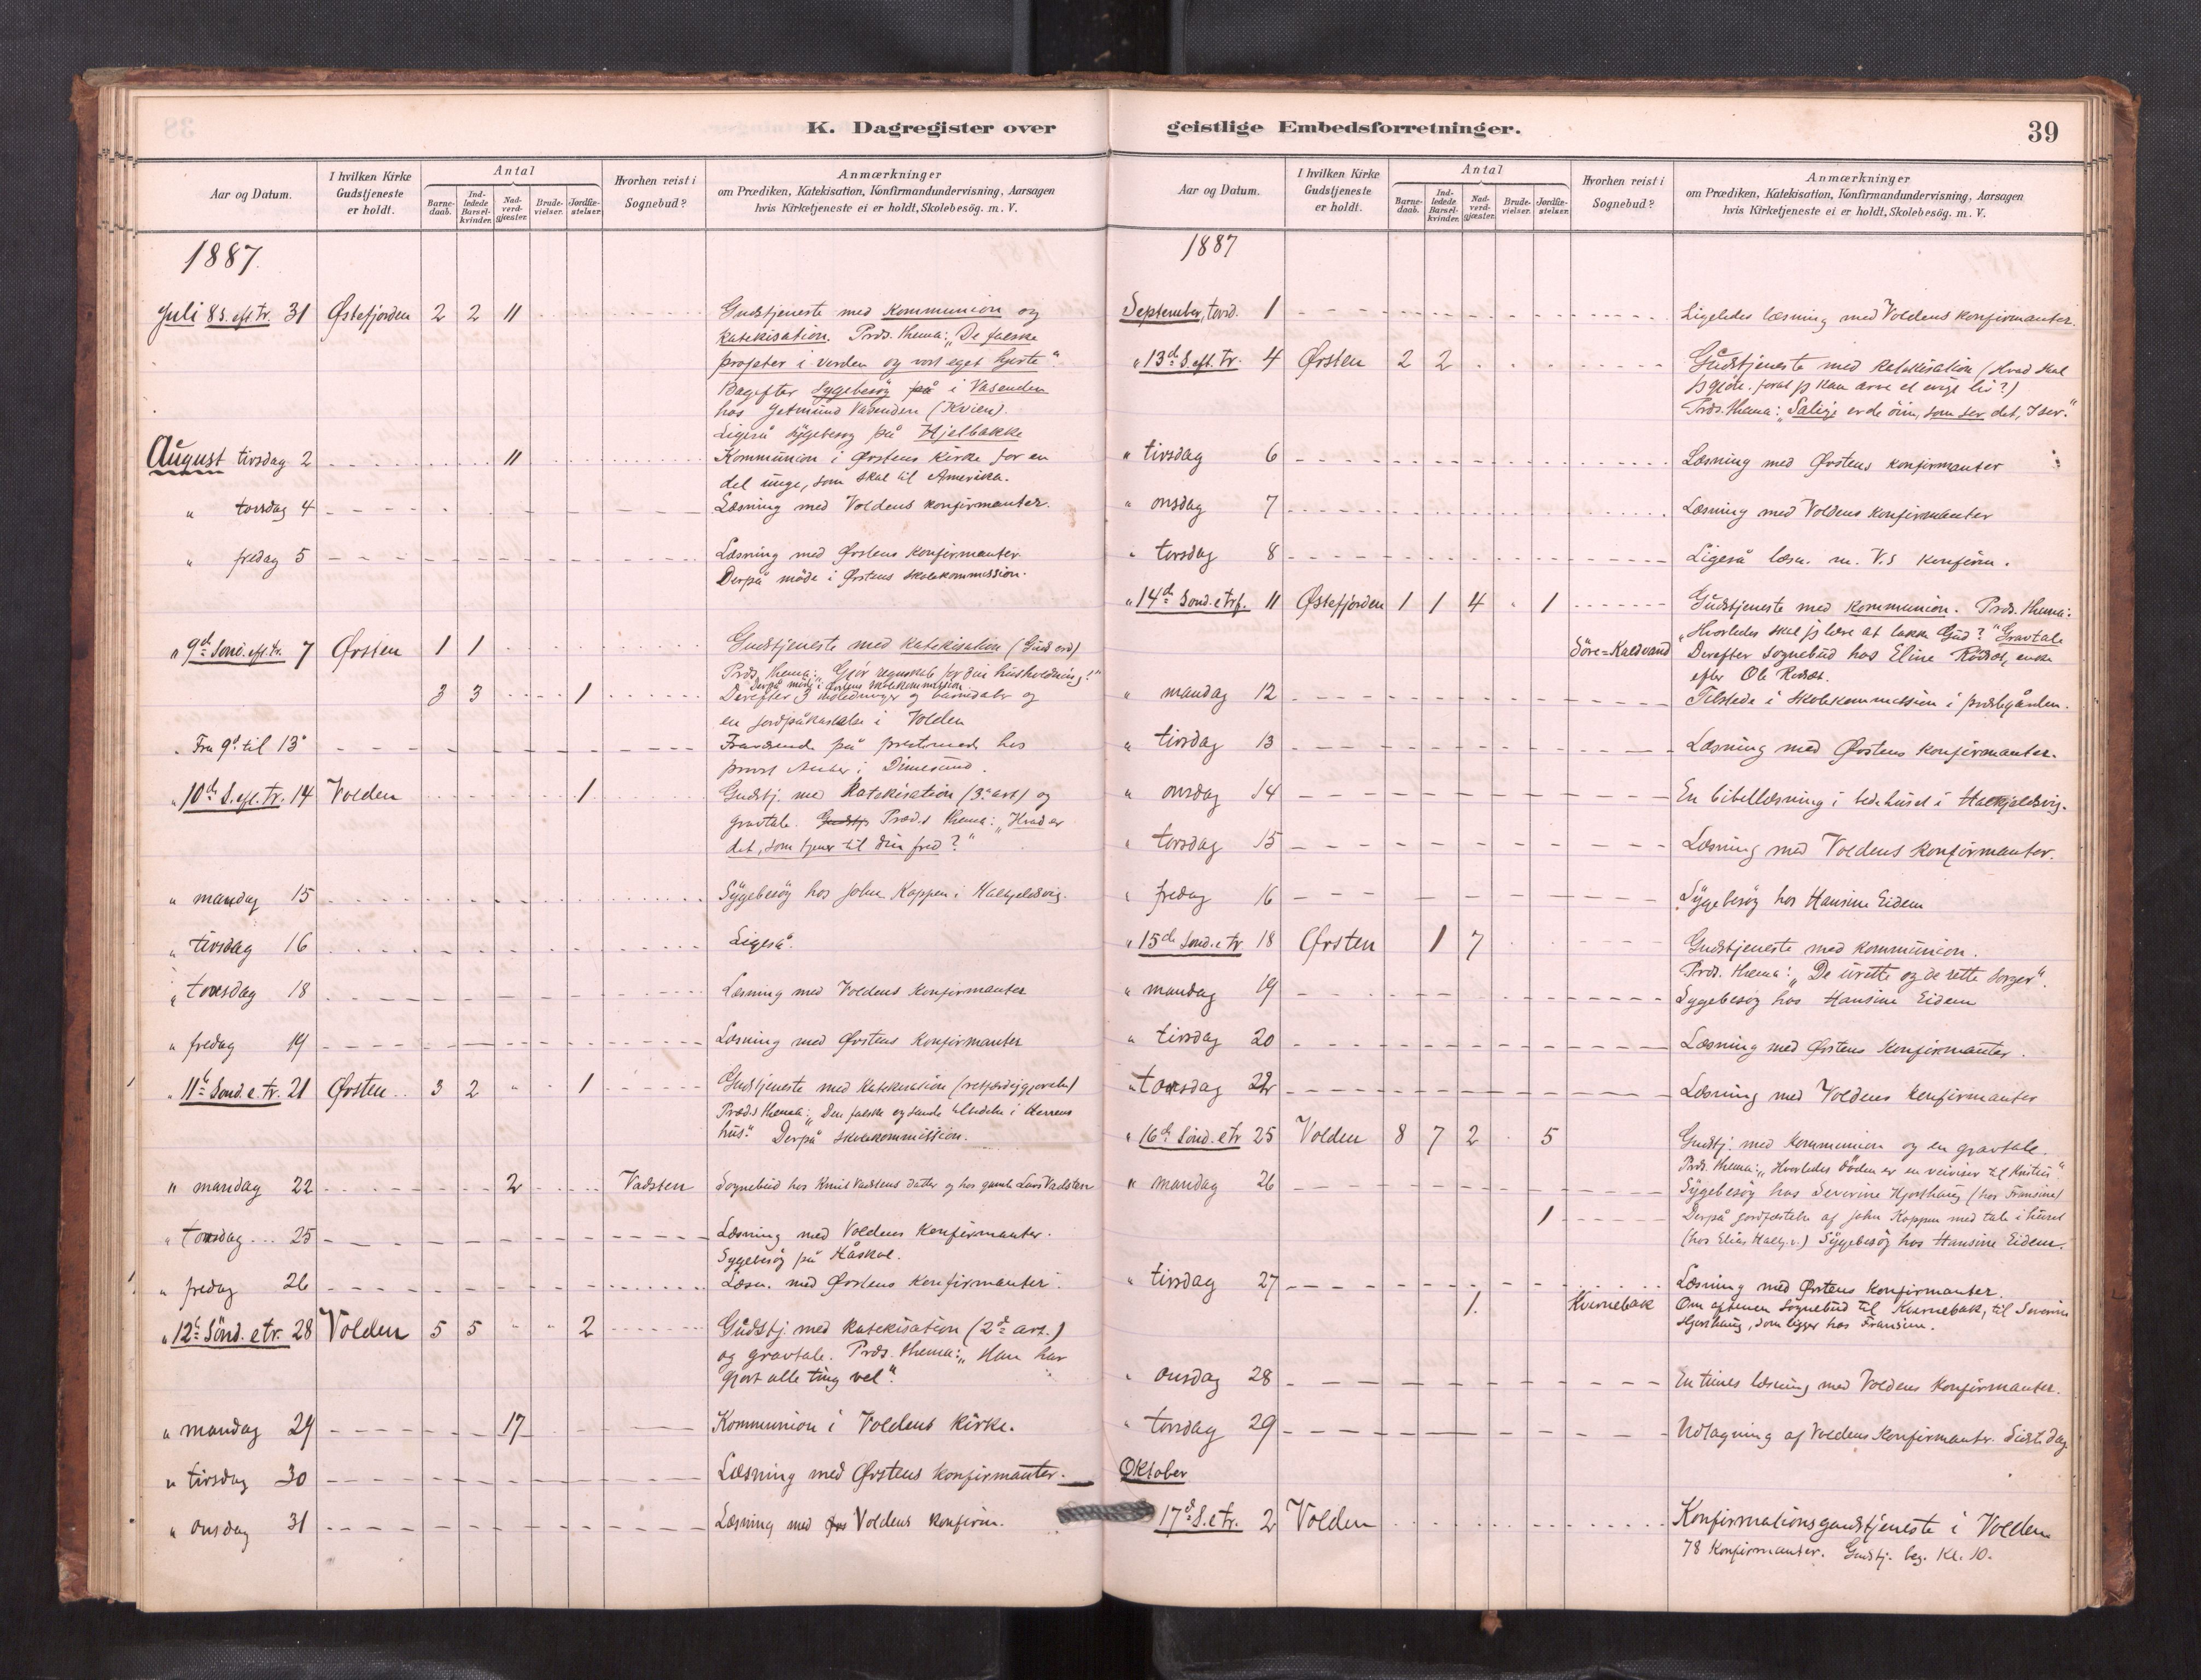 K. Dagregister over
Aar og Datum.
I hvilken Kirke Gudstjeneste er holdt.
Antal
Barne-daab.
Ind-ledede Barsel-kvinder.
Nad-verd-gjæster.
Brude-vielser.
Jordfæ-stelser.
Hvorhen reist i Sognebud?
Anmærkninger
om Prædiken, Katekisation, Konfirmandundervisning, Aarsagen
hvis Kirketjeneste ei er holdt, Skolebesög. m. V.
1887.
Juli 8 S. eft tr. 31 Østefjorden 2 2 11 Gudstjeneste med kommunion og
katekisation. Præd. thema: „De falske
profeter i verden og vort eget hjerte".
Bagefter sygebesög på i Vasenden
hos Vasenden (Kvien).
Ligeså sygebesøg på Hjelbakke
August tirsdag 2 11 Kommunion i Ørstens kirke for en
del unge, som skal til Amerika.
" torsdag 4 Læsning med Voldens konfirmanter.
" fredag 5 Læsning med Ørstens konfirmanter.
Derpå möde i Ørstens skolekommission.
" 9de Sönd. eft. tr. 7 Ørsten 1 1 Gudstjeneste med katekisation (Guds ord)
Præd. thema: „Gjör regnskab for din husholdning!"
Derpå möde i Ørstens skolekommission.
3 3 1 Derefter 3 indledninger og barnedåb og
en jordpåkastelse i Volden
" Fra 9de til 13de Fraværende på prestemøde hos
provst i
" 10de S. eft. tr. 14 Volden 1 Gudstj. med katekisation (3de art) og
gravtale. Gudstj. Præd.s thema: „Hvad er
det, som tjener til din fred?"
" mandag 15 Sygebesög hos John Koppen i Halkjeldsvig.
" tirsdag 16 Ligeså.
" torsdag 18 Læsning med Voldens konfirmanter
" fredag 19 Læsning med Ørstens konfirmanter
" 11te Sönd. e. tr. 21 Ørsten 3 2 1 Gudstjeneste med katekisation (retfærdiggjørelse)
Præd.s thema: „Den falske og sande tilbeder i Herrens
hus." Derpå skolekommission.
" mandag 22 2 Vadsten Sognebud hos Knut Vadstens datter og hos gamle Lars Vadsten
" torsdag 25 Læsning med Voldens konfirmanter.
Sygebesög på Håskol.
" fredag 26 Læsn. med Ørstens konfirmanter.
" 12te Sönd. e tr. 28 Volden 5 5 2 Gudstj. med katekisation (2den art.)
og gravtale. Præd. thema: „Han har
gjort alle ting vel".
" mandag 29 17 Kommunion i Voldens kirke.
" tirsdag 30 Læsning med Ørstens konfirmanter.
" onsdag 31 Læsning med Voldens konfirm.
geistlige Embedsforretninger.
39
Aar og Datum.
I hvilken Kirke Gudstjeneste er holdt.
Antal
Barne-daab.
Ind-ledede Barsel-kvinder.
Nad-verd-gjæster.
Brude-vielser.
Jordfæ-stelser.
Hvorhen reist i Sognebud?
Anmærkninger
om Prædiken, Katekisation, Konfirmandundervisning, Aarsagen
hvis Kirketjeneste ei er holdt, Skolebesög. m. V.
1887
September, torsd. 1 Ligeledes læsning med Voldens konfirmanter.
" 13de S. eft. tr. 4 Ørsten 2 2 Gudstjeneste med katekisation (Hvad skal
jeg gjöre, forat jeg kan arve et evigt liv?)
Præd. thema: „Salige er de öine, som ser det, I ser."
" tirsdag 6 Læsning med Ørstens konfirmanter
" onsdag 7 Læsning med Voldens konfirmanter
" torsdag 8 Ligeså læsn. m. V.s konfirm.
" 14de Sönd. e trf. 11 Østefjorden 1 1 4 1 Gudstjeneste med kommunion. Præd. thema:
„Hvorledes skal jeg lære at takke Gud?" Gravtale
Søre=Kaldvand Derefter sognebud hos Eline Rødsæt, enke
efter Ole Rødsæt.
" mandag 12 Tilstede i skolekommission i prestegården.
" tirsdag 13 Læsning med Ørstens konfirmanter.
" onsdag 14 En bibellæsning i bedehuset i Halkjeldsvig.
" torsdag 15 Læsning med Voldens konfirmanter.
" fredag 16 Sygebesög hos Hansine Eidem
" 15de Sönd. e tr 18 Ørsten 1 7 Gudstjeneste med kommunion.
Præd. thema: „De urette og de rette sorger".
" mandag 19 Sygebesög hos Hansine Eidem
" tirsdag 20 Læsning med Ørstens konfirmanter.
" torsdag 22 Læsning med Voldens konfirmanter
" 16de Sönd. e tr 25 Volden 8 7 2 5 Gudstj. med kommunion og en gravtale.
Præd. thema: „Hvorledes döden er en veiviser til Kristus".
" mandag 26 Sygebesög hos Severine Hjorthaug (hos Fransine)
1 Derpå jordfæstelse af John Koppen med tale i huset
(hos Elias Halkj.v.) Sygebesög hos Hansine Eidem.
" tirsdag 27 Læsning med Ørstens konfirmanter.
1. Kvirnebak Om aftenen sognebud til Kvirnebak, til Severine
Hjorthaug, som ligger hos Fransine.
" onsdag 28 En times læsning med Voldens konfirmanter.
" torsdag 29 Udtagning af Voldens konfirmanter. Sidste dag
Oktober
17de S. e tr. 2 Volden Konfirmationsgudstjeneste i Volden
78 konfirmanter. Gudstj. beg. kl. 10.